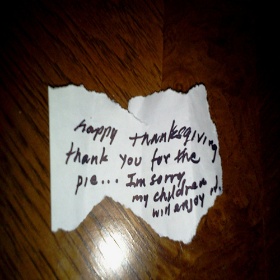 Happy thanksgiving
thank you for the
pie... I'm sorry
my children
will enjoy it.